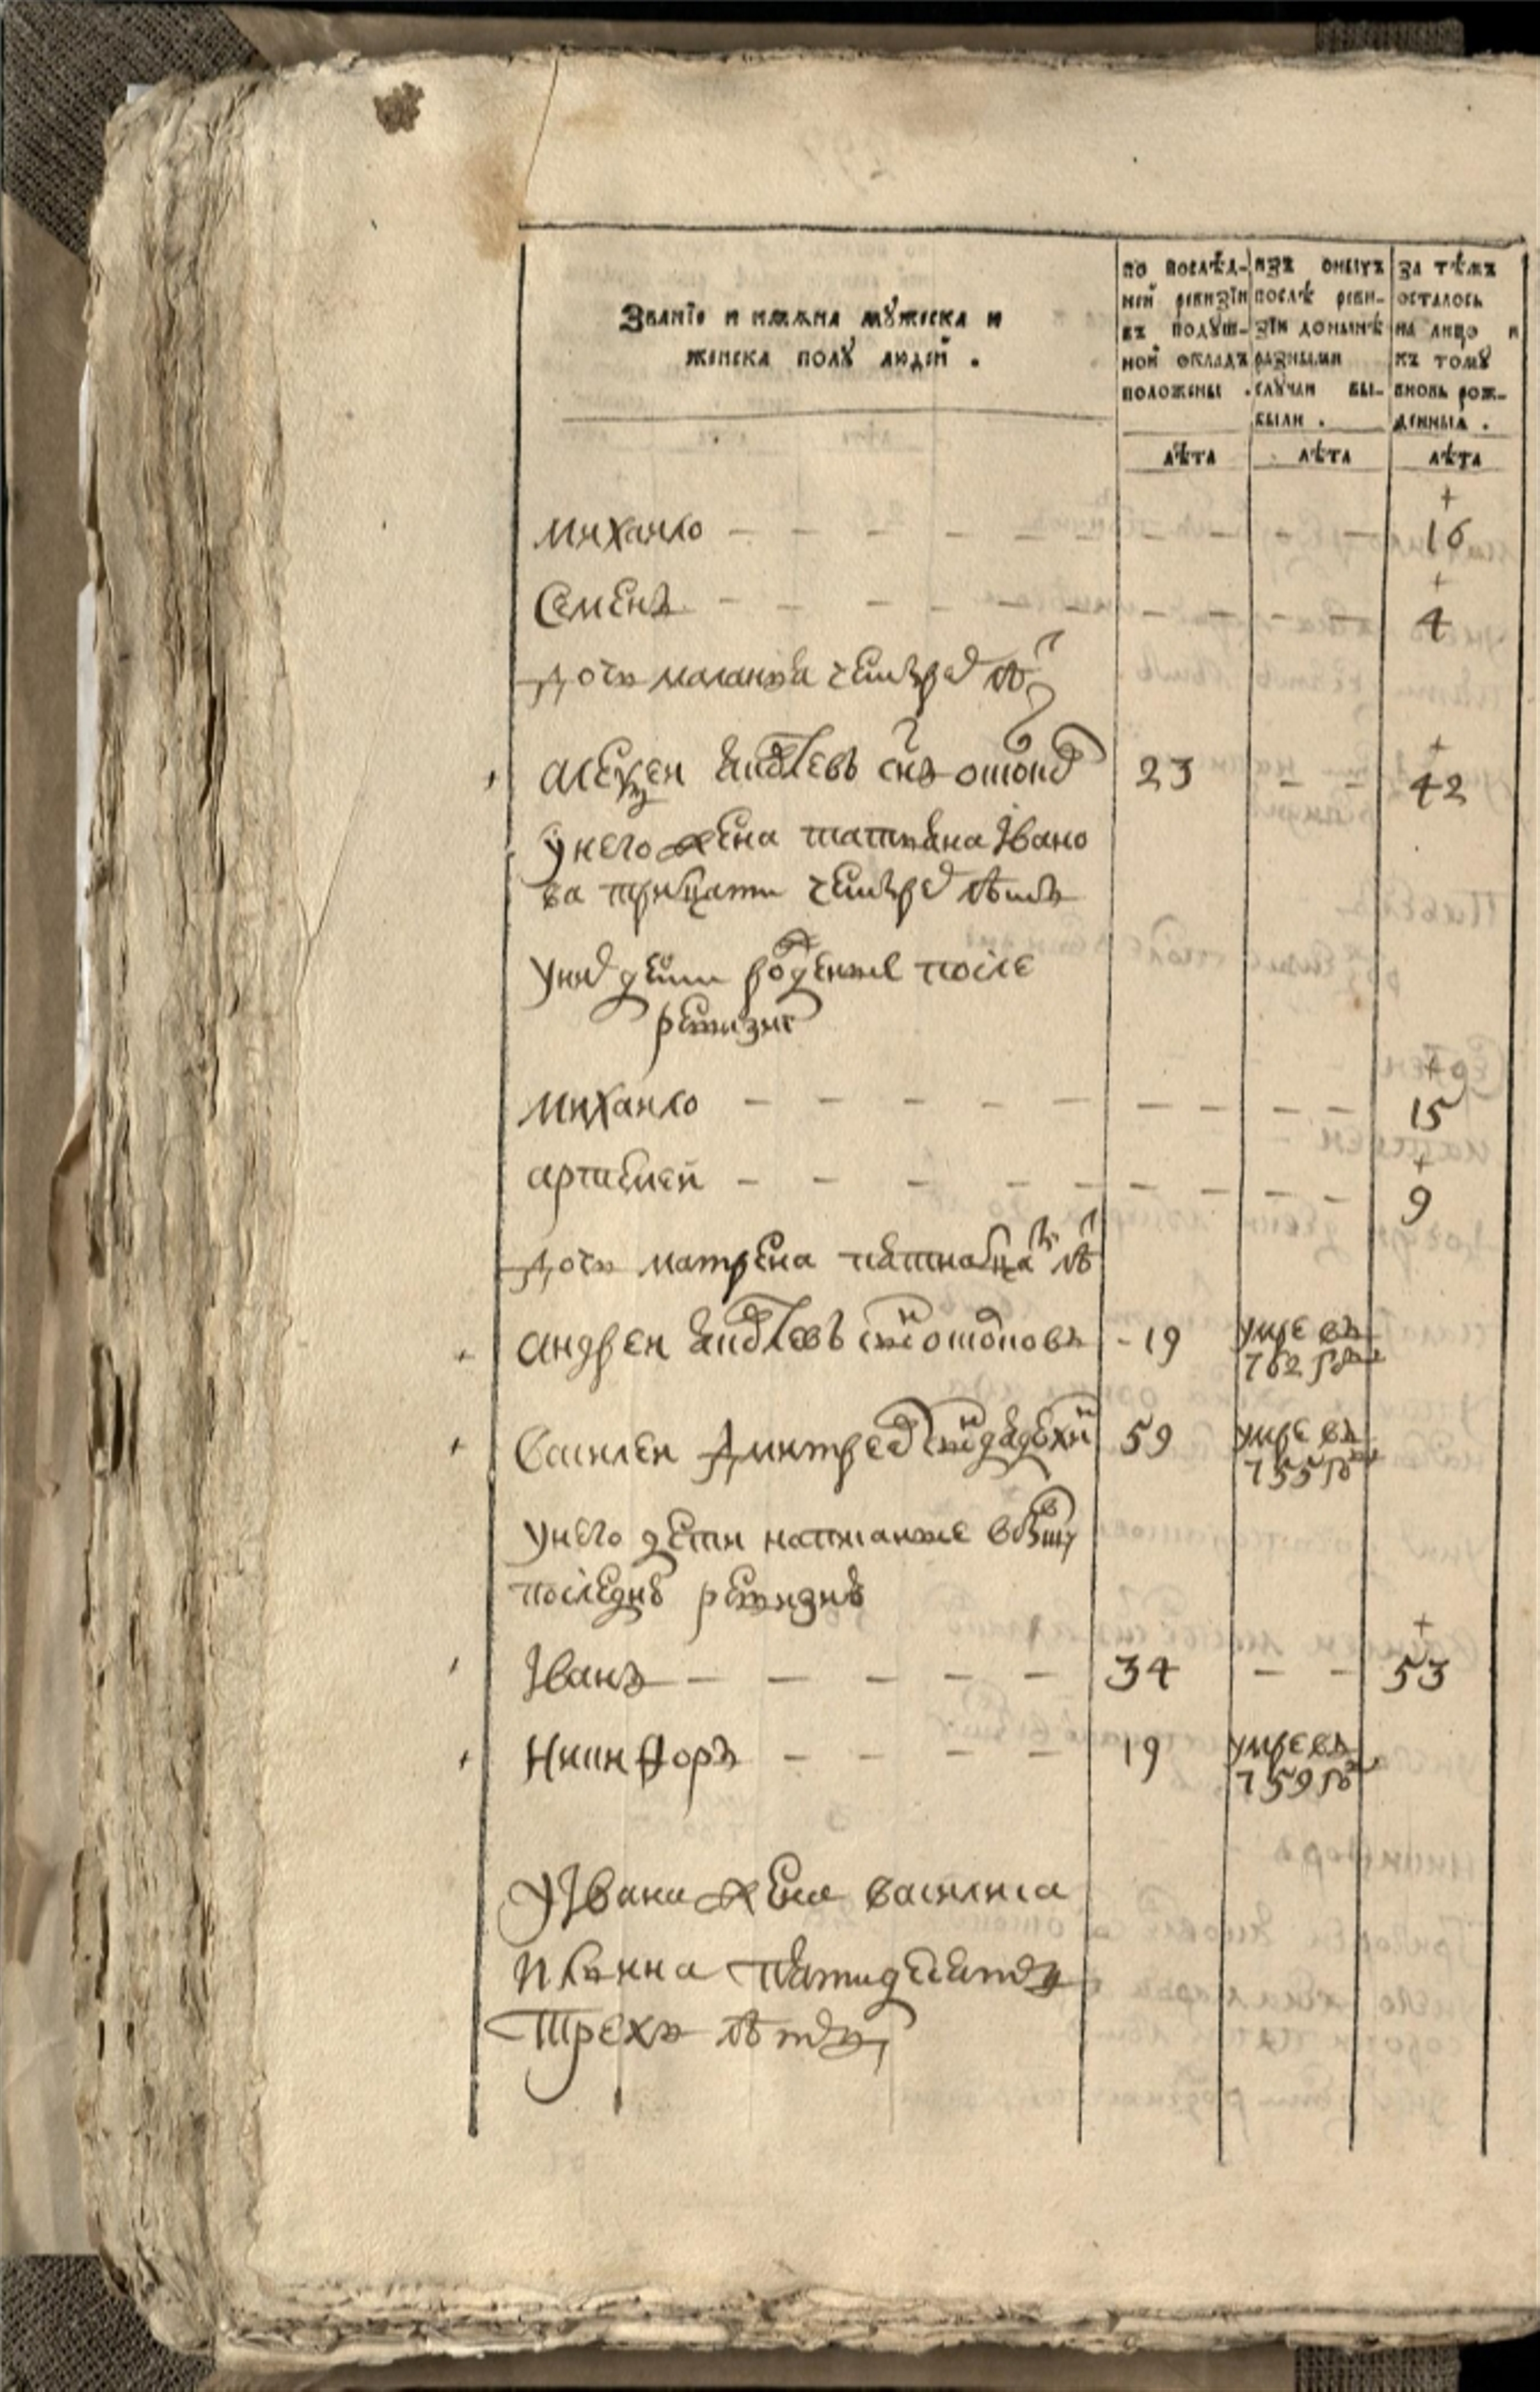 Званїе и имѧна мꙋжеска и
женска полꙋ людей .
по послѣд-
ней ревизїи
въ подꙋш-
ной окладъ
положены .
изъ оныхъ
послѣ реви-
зїи донынѣ
разными
слꙋчаи вы-
были .
за тѣмъ
осталось
на лицо и
къ томꙋ
вновь рож-
денныѧ .
лѣта лѣта лѣта
михаило - - - - - - - - - + 16
Семенъ - - - - - - - - - + 4
дочь маланья четырех лѣт
Алексей Яковлевъ снъ 23 - - + 42
у него жена татьяна Івано
ва трицати четырех лѣтъ
у них дети рожденные после
ревизии
михаило - - - - - - - - - + 15
артемей - - - - - - - - - + 9
дочь матрена пятнацать лѣт
андреи Яковлевъ снъ - 19 умре въ
762 году
Василеи Дмитреев снъ 59 умре въ
755 году
у него дети написанные в бывшую
последнюю ревизию
Іванъ - - - - - - 34 - - + 53
Никифоръ - - - - - 19 умре въ
759 году
У Івана жена василиса
Ильина пятидесяти
трехъ лѣтъ